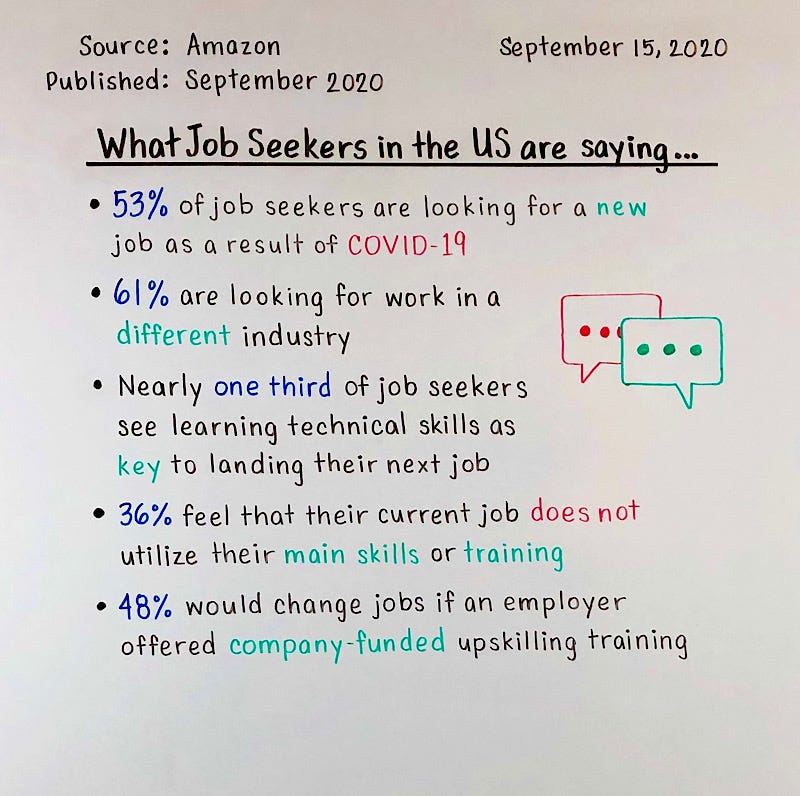 Source: Amazon
September 15, 2020
Published: September 2020
What Job Seekers in the US are saying...
• 53% of job seekers are looking for a new
job as a result of COVID-19
• 61% are looking for work in a
different industry
• Nearly one third of job seekers
see learning technical skills as
key to landing their next job
• 36% feel that their current job does not
utilize their main skills or training
• 48% would change jobs if an employer
offered company-funded upskilling training